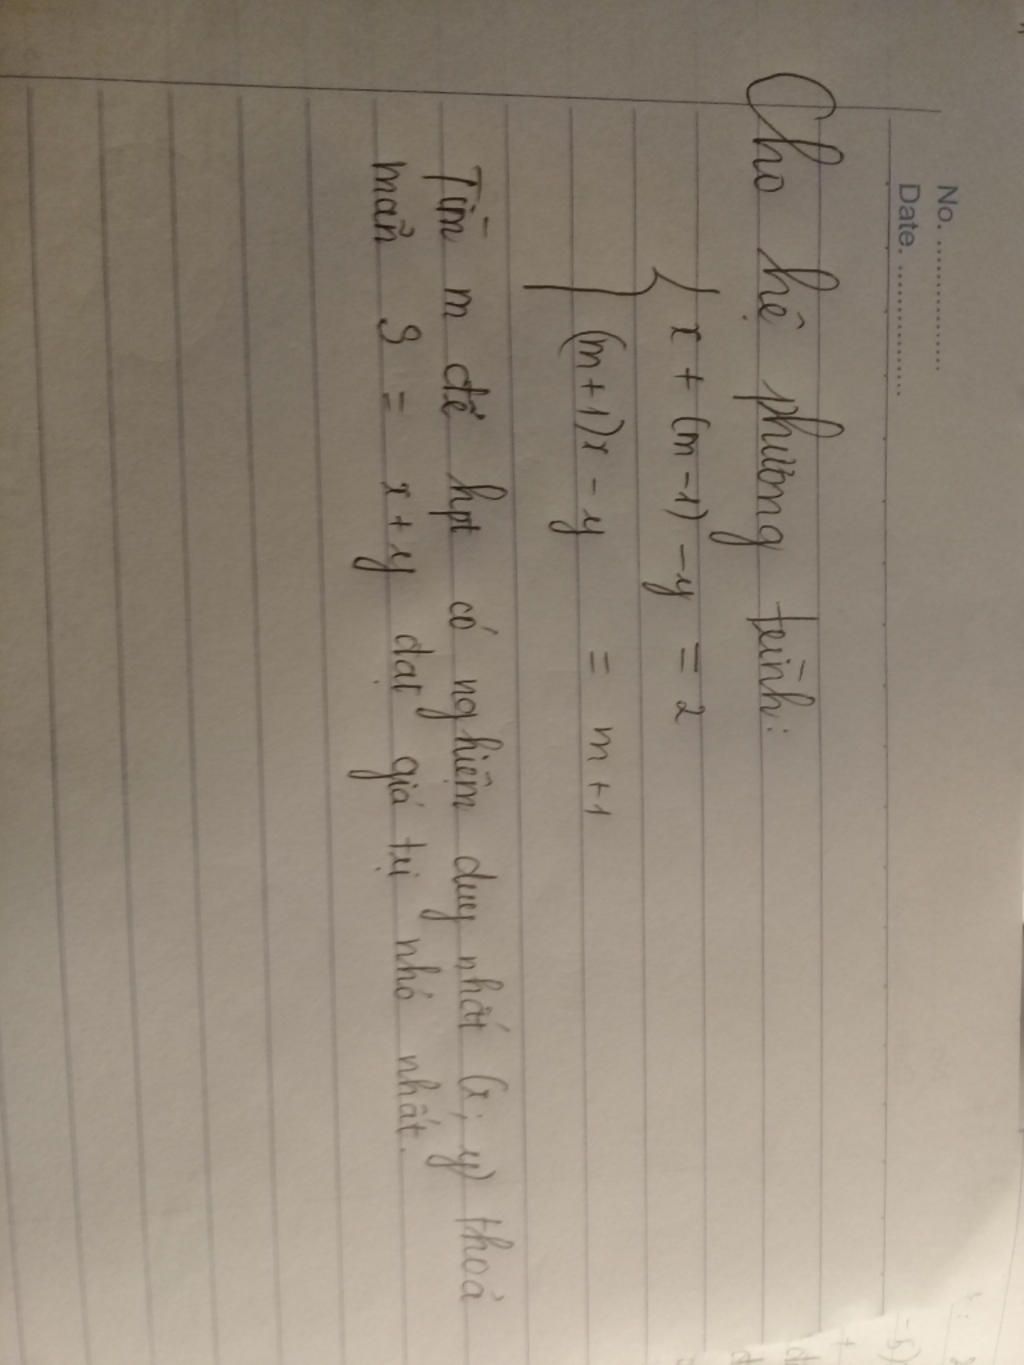 No. ................
Date. ................
Cho hệ phương trình:
{ x + (m - 1) - y = 2
(m + 1)x - y = m + 1
Tìm m để hpt có nghiệm duy nhất (x; y) thoả
mãn S = x + y đạt giá trị nhỏ nhất.